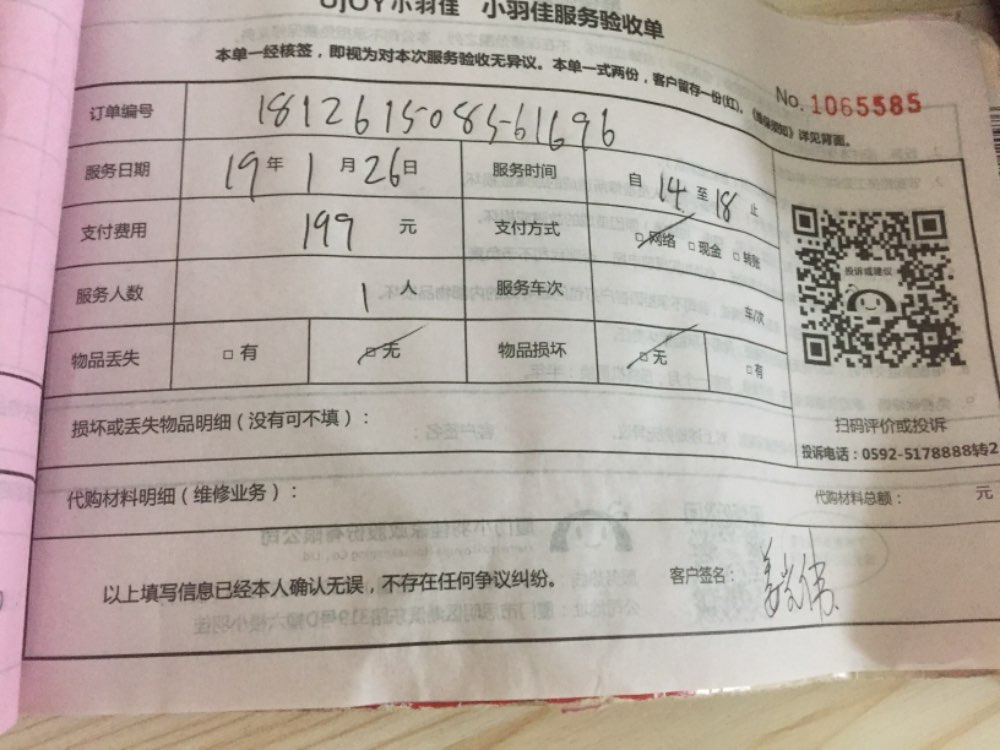 UJOY小羽佳 小羽佳服务验收单
本单一经核签，即视为对本次服务验收无异议。本单一式两份，客户留存一份(红)。《维保须知》详见背面。
No. 1065585
订单编号 1812615-085-61696
服务日期 19年1月26日 服务时间 自14至18止
支付费用 199元 支付方式 □网络 □现金 □转账
服务人数 1人 服务车次 车/次
物品丢失 □有 □无 物品损坏 □无 □有
投诉或建议
扫码评价或投诉
投诉电话：0592-5178888转2
损坏或丢失物品明细（没有可不填）：
代购材料明细（维修业务）： 代购材料总额： 元
以上填写信息已经本人确认无误，不存在任何争议纠纷。 客户签名：